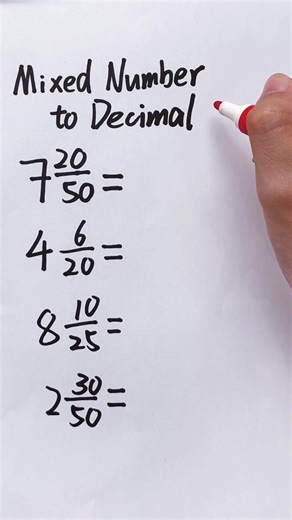 Mixed Number
to Decimal
7 20/50 =
4 6/20 =
8 10/25 =
2 30/50 =